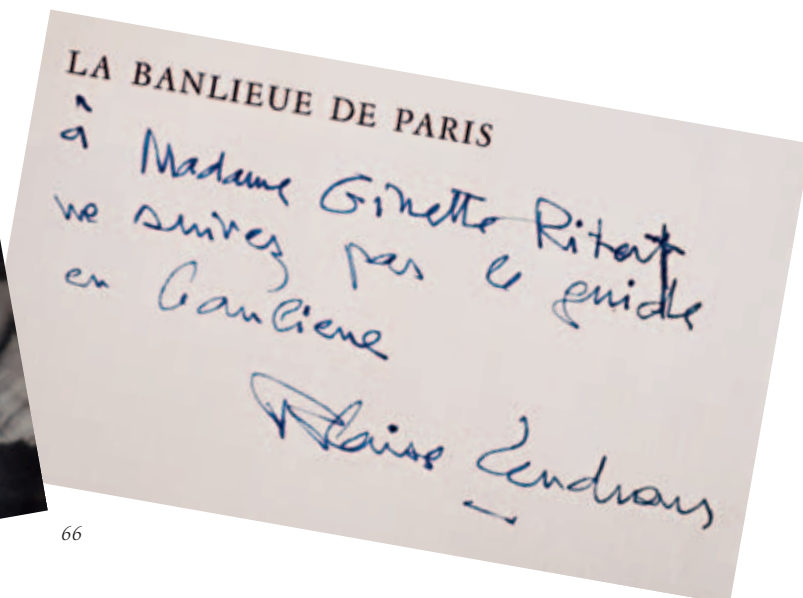 LA BANLIEUE DE PARIS
à Madame Ginette
ne suivez pas le guide
en banlieue
Blaise Cendrars
66